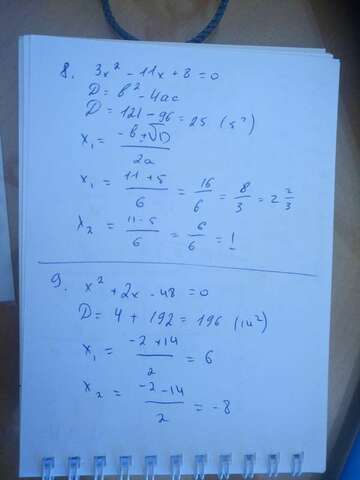 8. 3x² - 11x + 8 = 0
D = b² - 4ac
D = 121 - 96 = 25 (5²)
x₁ = (-b + √D) / 2a
x₁ = (11 + 5) / 6 = 16/6 = 8/3 = 2 2/3
x₂ = (11 - 5) / 6 = 6/6 = 1
9. x² + 2x - 48 = 0
D = 4 + 192 = 196 (14²)
x₁ = (-2 + 14) / 2 = 6
x₂ = (-2 - 14) / 2 = -8